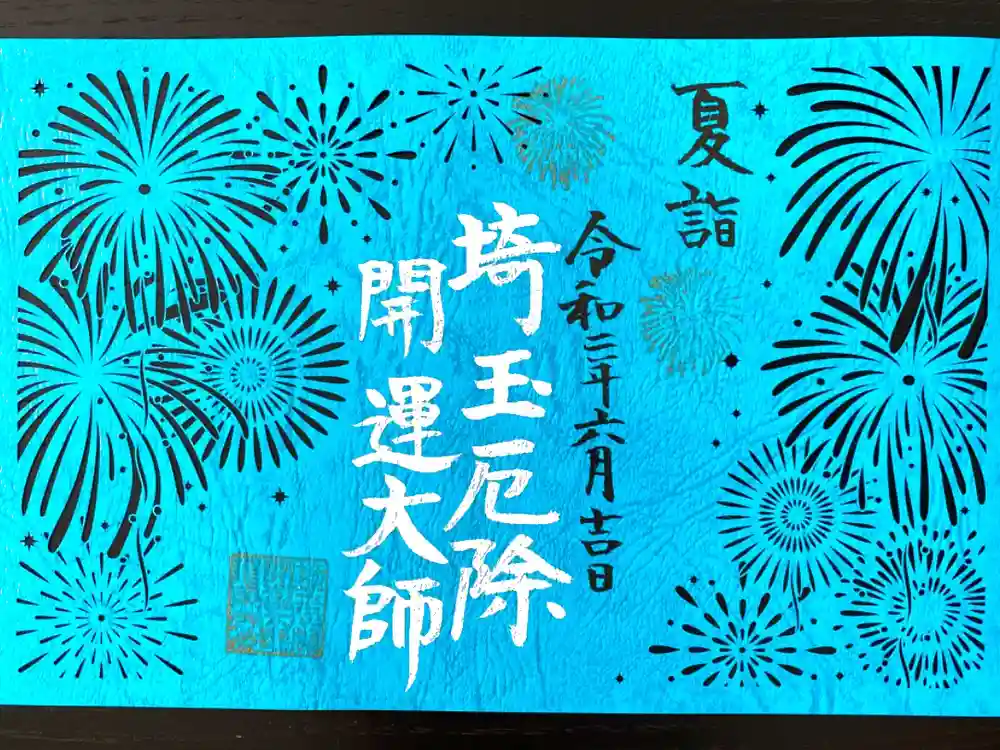 夏詣
令和三年六月吉日
埼玉厄除
開運大師